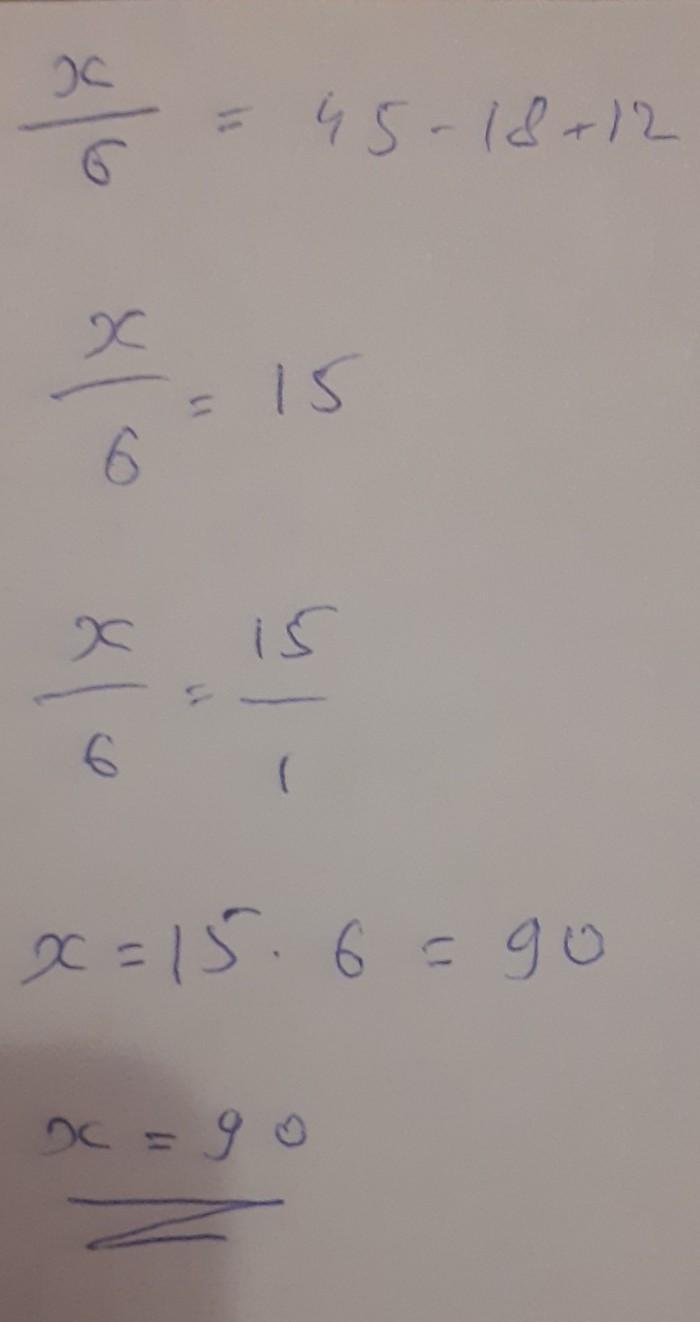 x/6 = 45-18+12
x/6 = 15
x/6 = 15/1
x = 15 · 6 = 90
x = 90